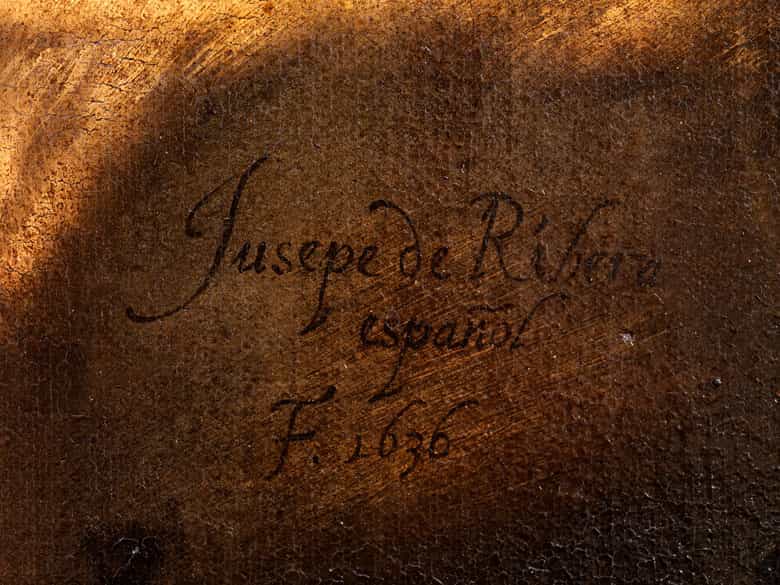 Jusepe de Ribera
español
F. 1636